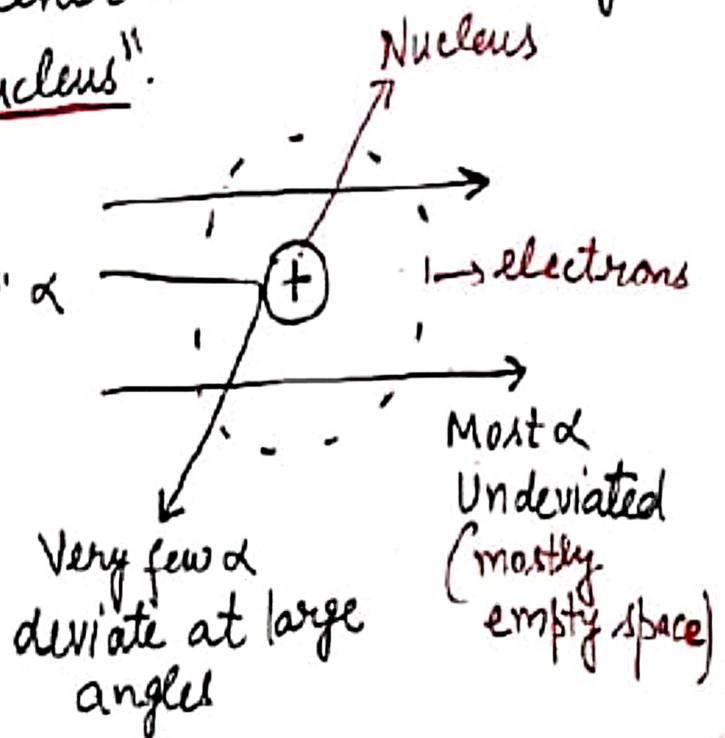 Nucleus
ucleus".
+
α
→ electrons
Most α
Undeviated
(mostly
empty space)
Very few α
deviate at large
angles